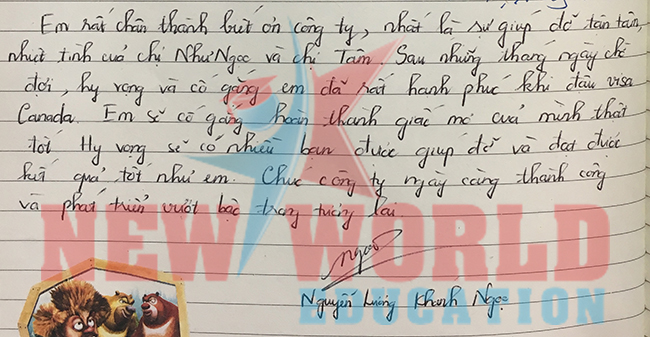 Em rất chân thành biết ơn công ty, nhất là sự giúp đỡ tận tâm,
nhiệt tình của chị Như Ngọc và chị Tâm. Sau những tháng ngày chờ
đợi, hy vọng và cố gắng em đã rất hạnh phúc khi đậu visa
Canada. Em sẽ cố gắng hoàn thành giấc mơ của mình thật
tốt. Hy vọng sẽ có nhiều bạn được giúp đỡ và đạt được
kết quả tốt như em. Chúc công ty ngày càng thành công
và phát triển vượt bậc trong tương lai.
Ngọc
Nguyễn Lương Khánh Ngọc
NEW WORLD
EDUCATION